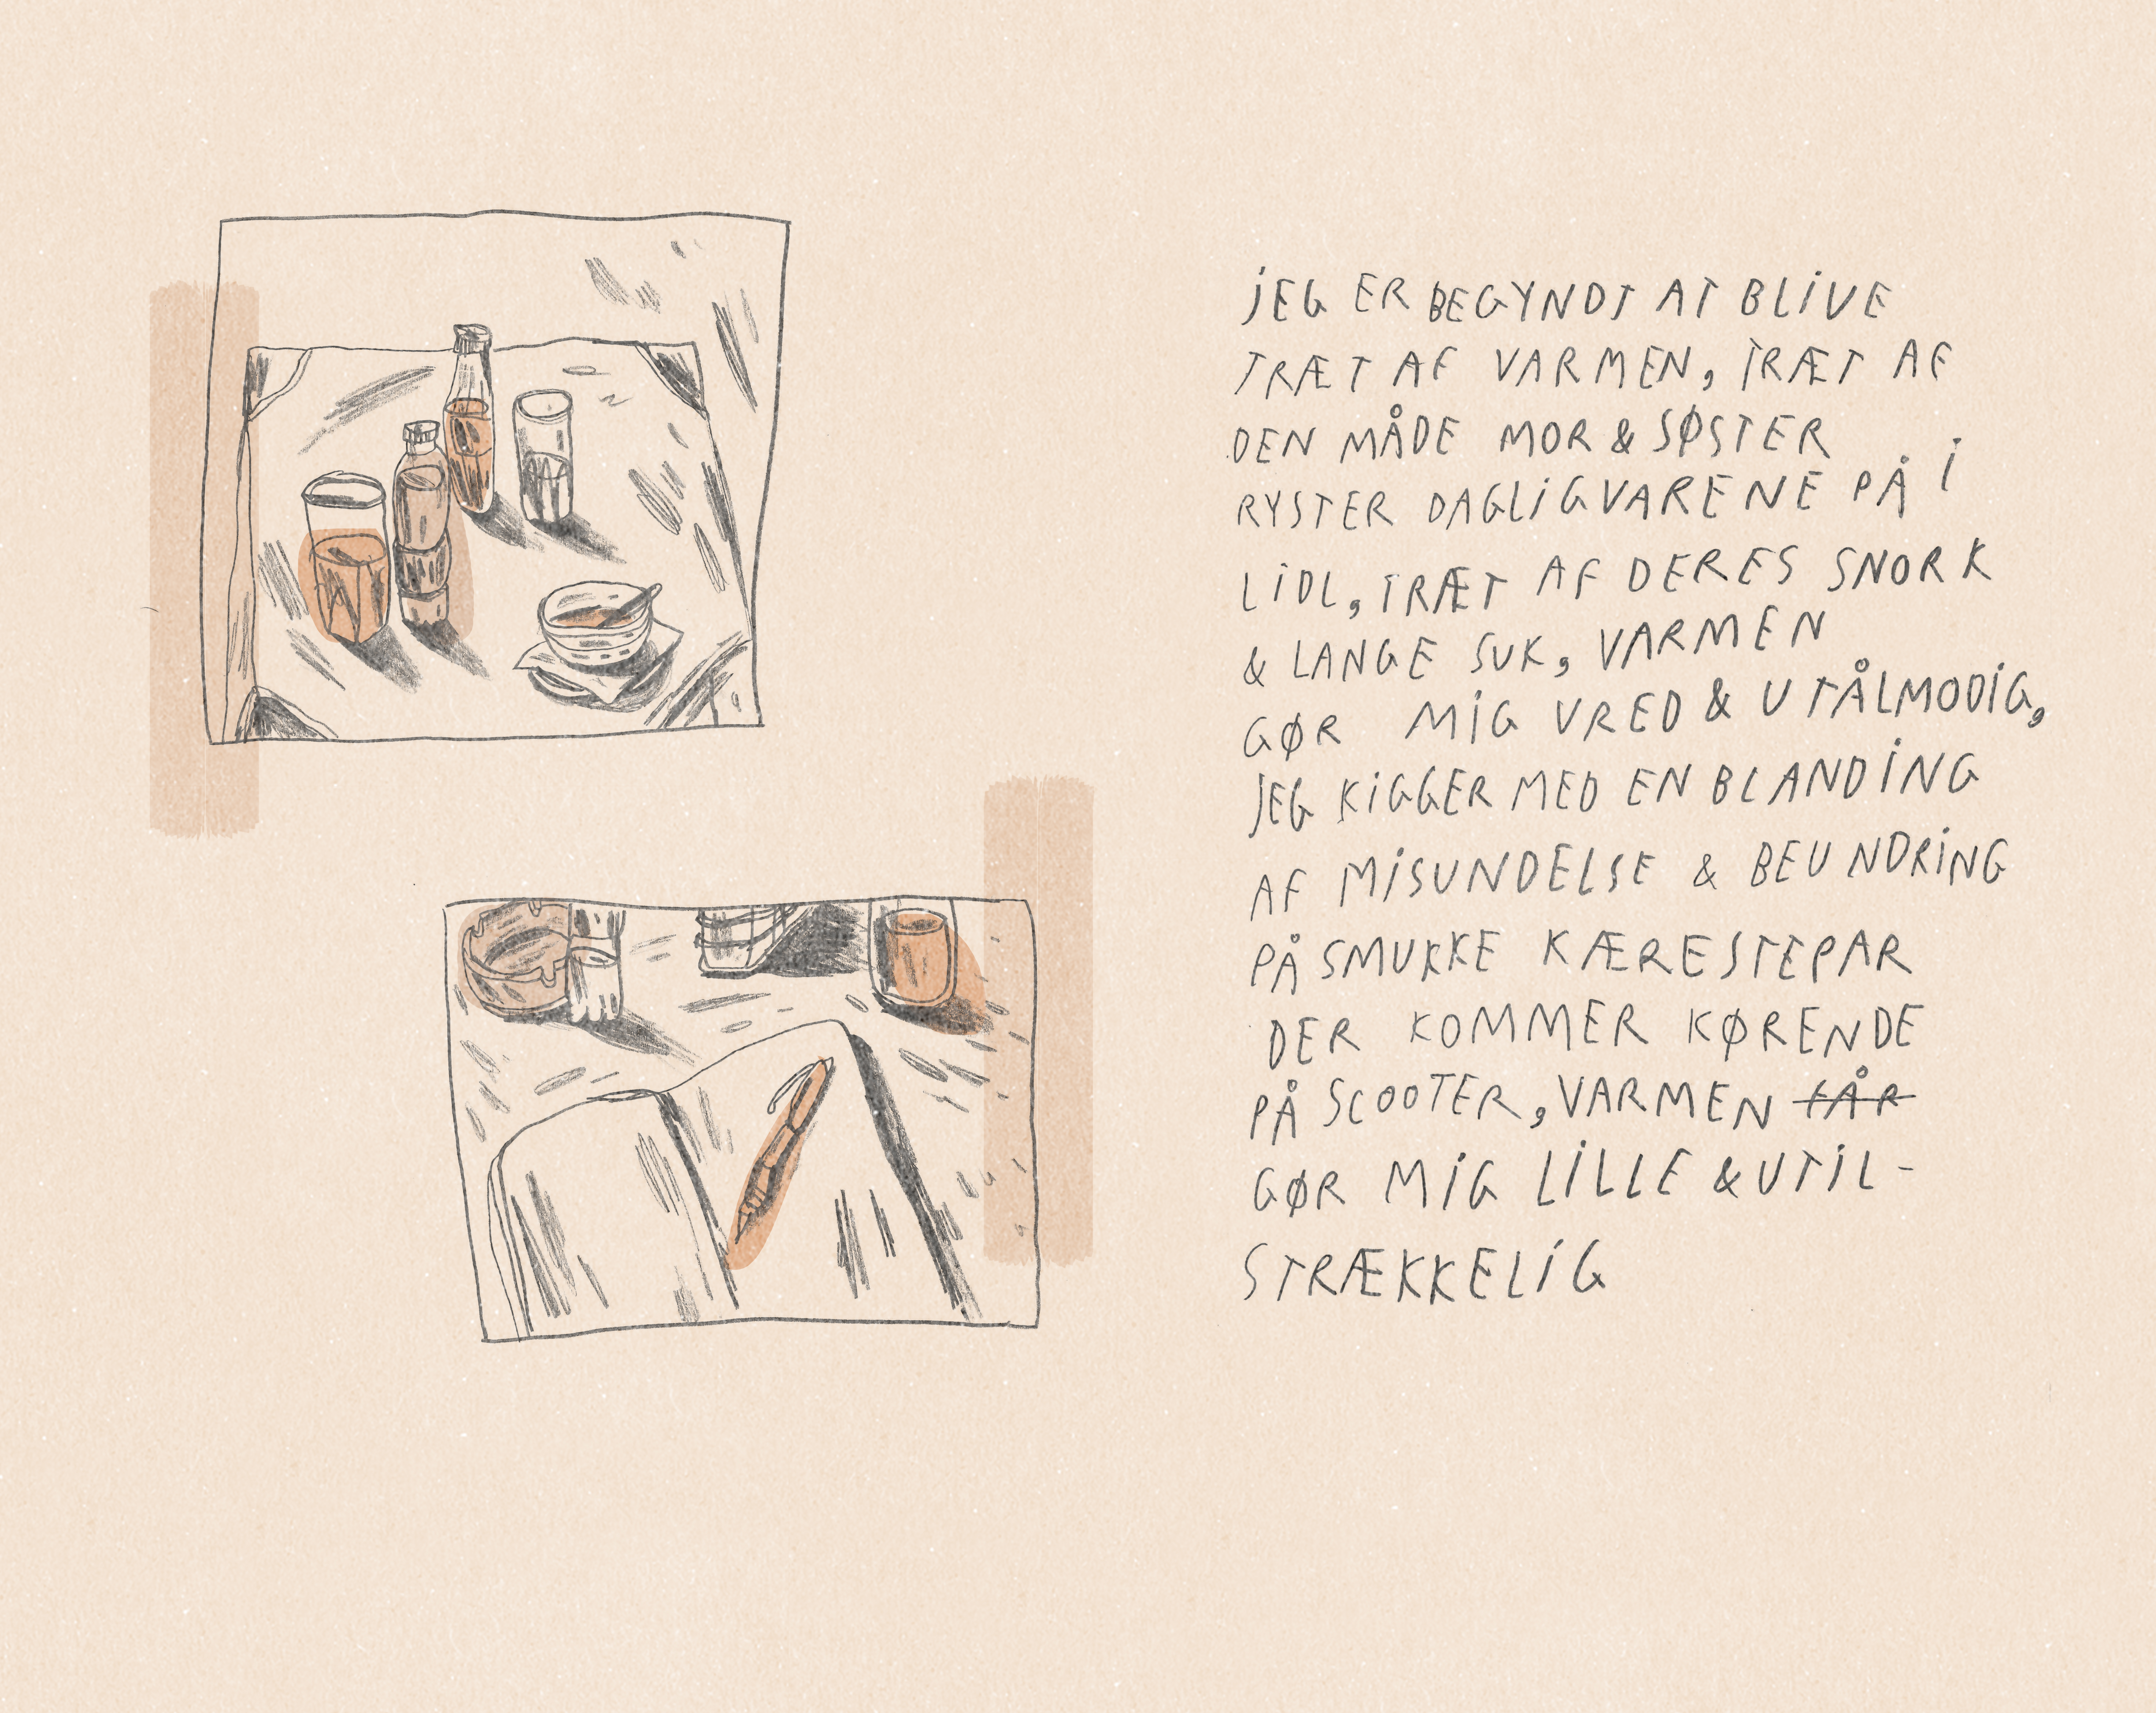 JEG ER BEGYNDT AT BLIVE
TRÆT AF VARMEN, TRÆT AF
DEN MÅDE MOR & SØSTER
RYSTER DAGLIGVARENE PÅ I
LIDL, TRÆT AF DERES SNORK
& LANGE SUK, VARMEN
GØR MIG VRED & UTÅLMODIG,
JEG KIGGER MED EN BLANDING
AF MISUNDELSE & BEUNDRING
PÅ SMUKKE KÆRESTEPAR
DER KOMMER KØRENDE
PÅ SCOOTER, VARMEN FÅR
GØR MIG LILLE & UTIL-
STRÆKKELIG